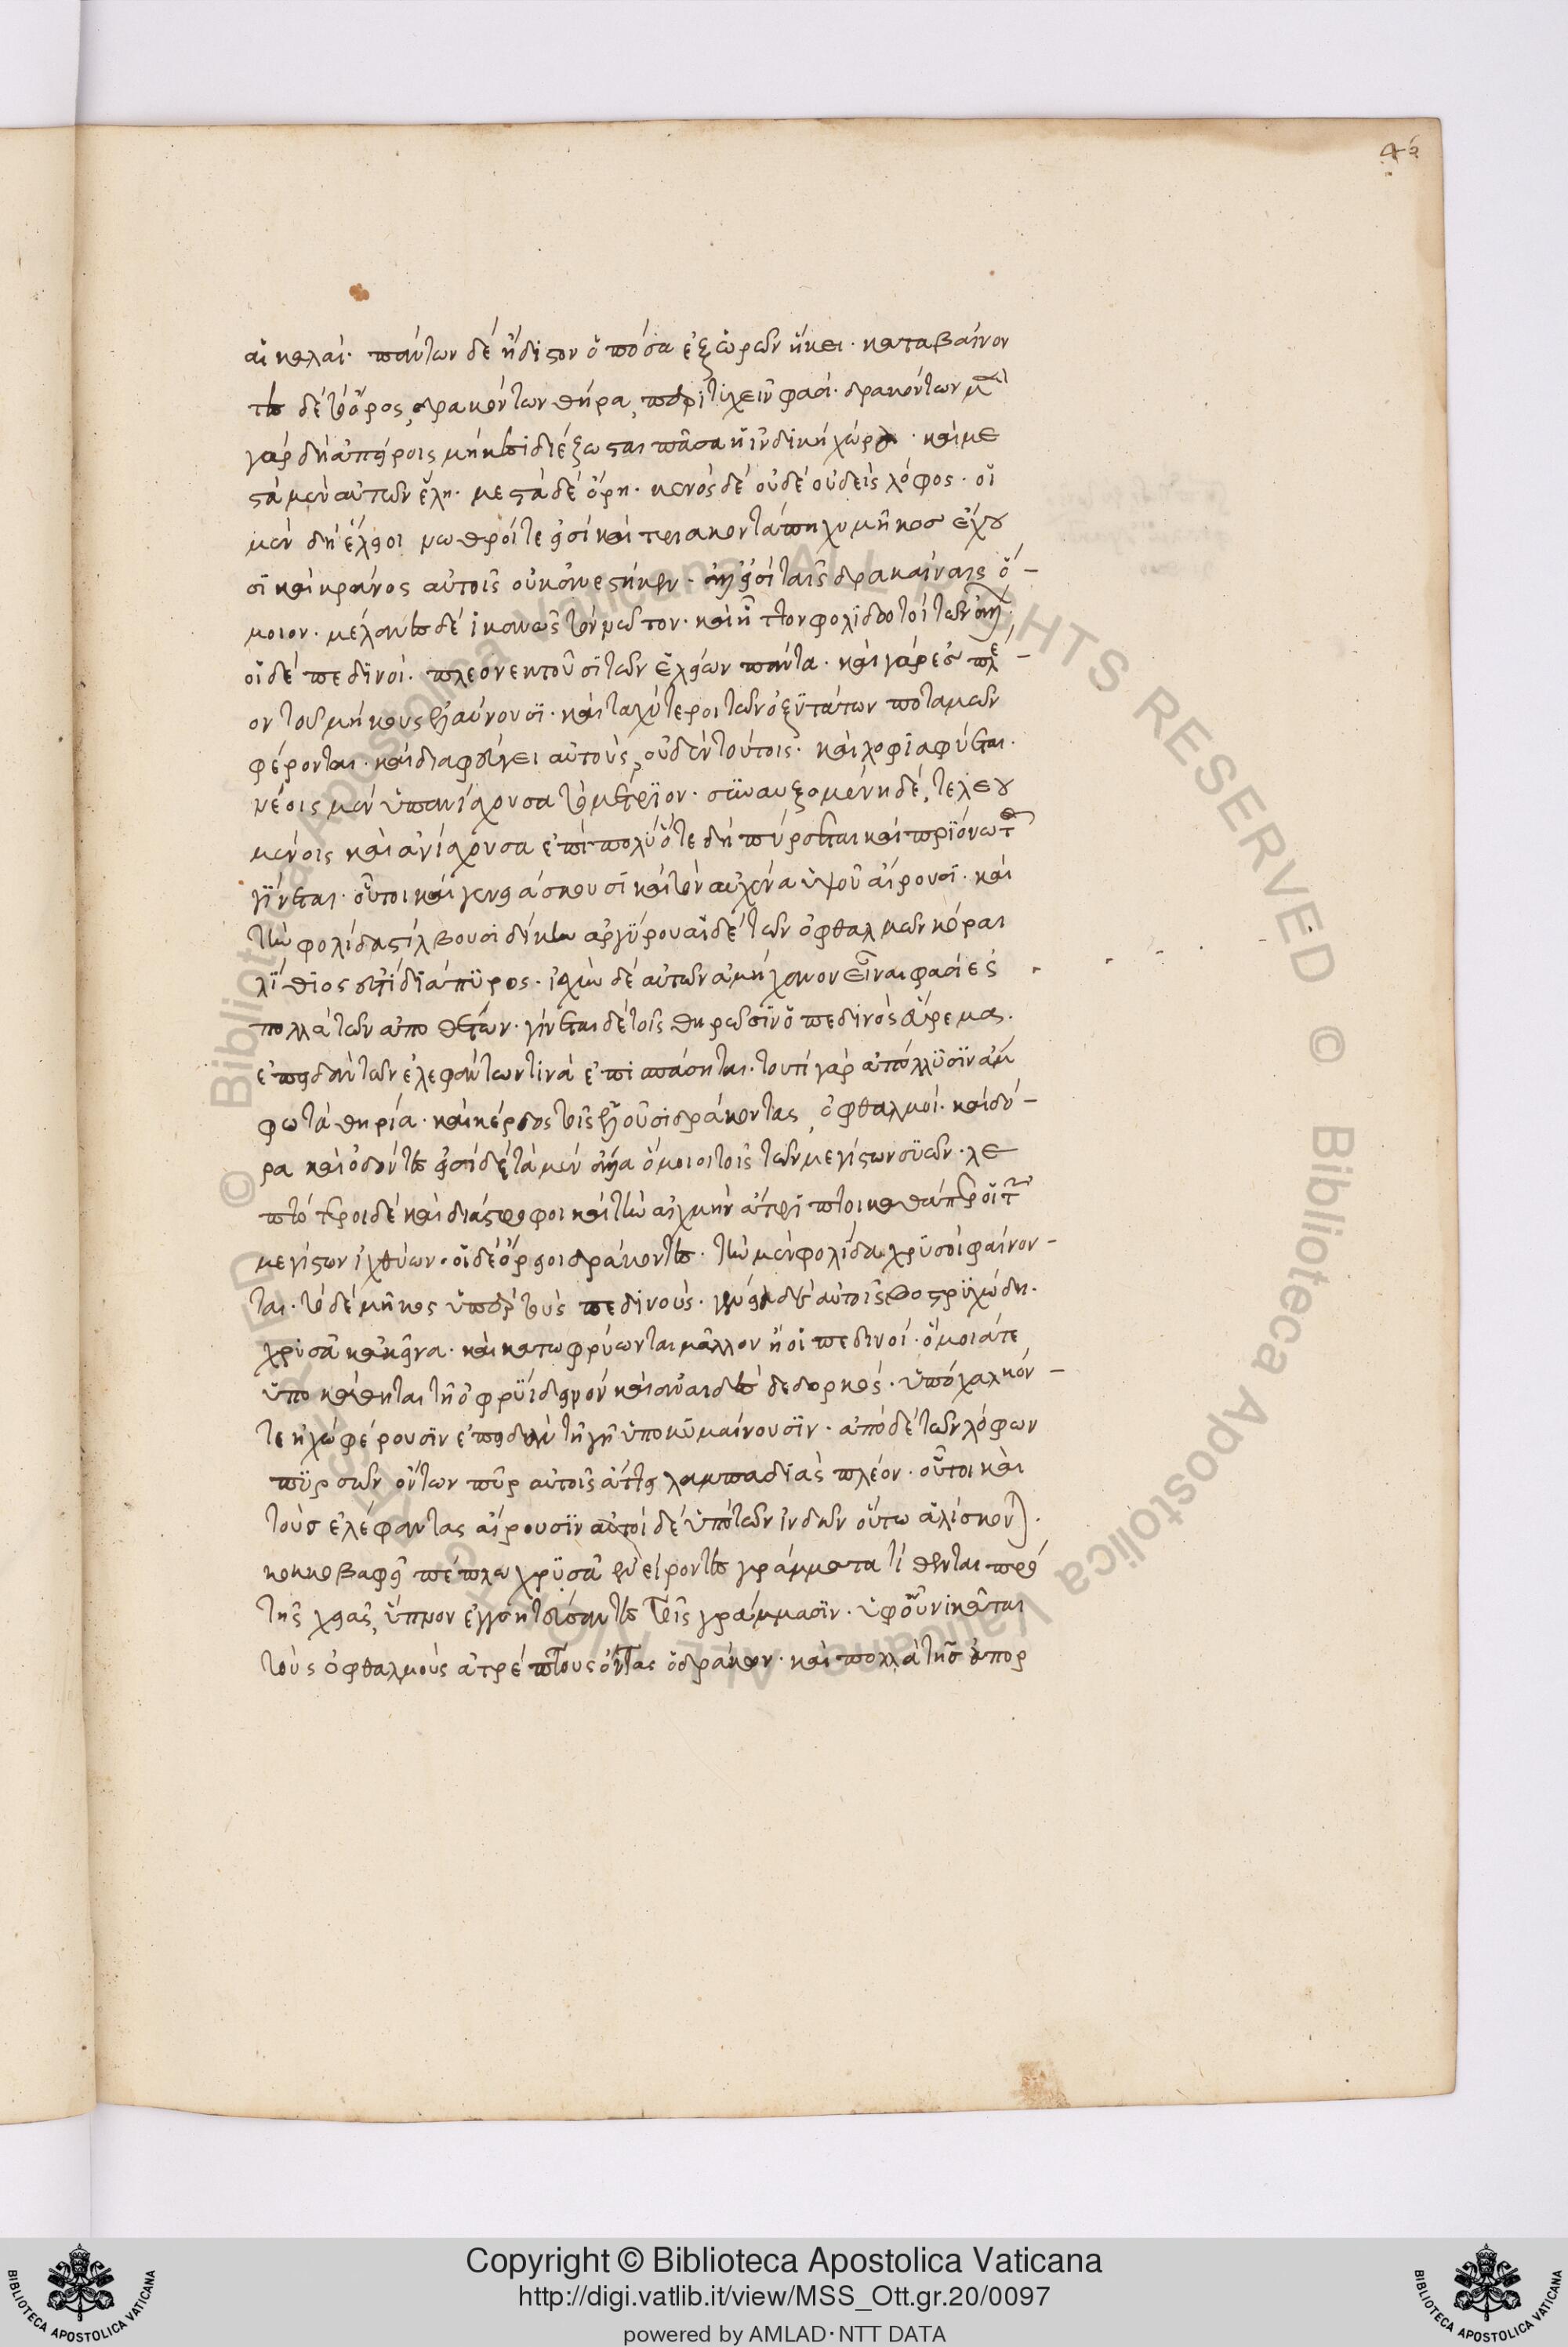 43
αἱ καλαί· πάντων δέ ἥδιστον ὁπόσα ἐξ ὡρῶν ἥκει· καταβαίνον
τες δέ τὸ ὄρος, δρακόντων θήρα, περιτυχεῖν φασί· δρακόντων μὲν
γάρ δή ἀπείροις μήκεσι διέζωσται πᾶσα ἡ ἰνδική χώρα · καί με
στά μέν αὐτῶν ἕλη· μεστά δέ ὄρη· κενός δέ οὐδέ οὐδείς λόφος· οἱ
μέν δή έλειοι νωθροί τε εἰσί καί τριακοντάπηχυ μῆκος ἔχου
σι καί κράνος αὐτοῖς οὐκ ἀνεστηκεν· ἀλλ' εἰσί ταῖς δρακαίναις ὅ-
μοιον· μέλανες δέ ἱκανῶς τόν νῶτον· καί ἧττον φολιδωτοί τῶν ἄλλ
οἱ δέ πεδινοί· πλεονεκτοῦσι τῶν ἑλείων πάντα· καί γάρ ἐσ πλέ-
ον τοῦ μήκους ἐλαύνουσι· καί ταχύτεροι τῶν ὀξυτάτων ποταμῶν
φέρονται· καί διαφεύγει αὐτούς, οὐδέν τούτοις· καί λοφία φύεται·
νέοις μέν ὑπανίσχουσα τό μέτριον· συναυξομένη δέ, τελειου
μένοις καί ἀνίσχουσα ἐπί πολύ ὅτε δή πύρσεται καί πριόνωτ
γίνεται· οὗτοι καί γενειάσκουσι καί τόν αὐχένα ὑψοῦ αἴρουσι· καί
τήν φολίδα στίλβουσι δίκην ἀργύρου αἱ δέ τῶν ὀφθαλμῶν κόραι
λίθος ἐστί διάπυρος· ἰσχύν δέ αὐτῶν ἀμήχανον εἶναι φασί ἐς
πολλά τῶν ἀποθέτων· γίνεται δέ τοῖς θηρῶσιν ὁ πεδινός εὕρεμα·
ἐπειδάν τῶν ἐλεφάντων τινά ἐπισπάσηται· τουτί γάρ ἀπόλλυσιν ἄμ
φω τά θηρία· καί κέρδος τοῖς ἑλοῦσι δράκοντας, ὀφθαλμοί· καί δο-
ρα καί ὀδόντες εἰσί δέ τά μέν ἄλλα ὅμοιοι τοῖς τῶν μεγίστων συῶν· λε
πτότεροι δέ καί διάστροφοι καί τήν αἰχμήν ἄτριπτοι καθάπερ οἱ τῶν
μεγίστων ἰχθύων· οἱ δέ ὄρειοι δράκοντες· τήν μέν φολίδα χρυσοί φαίνον-
ται· τό δέ μῆκος ὑπέρ τούς πεδινούς· γένεια δέ αὐτοῖς βοστρυχώδη·
χρυσᾶ κἀκεῖνα· καί κατωφρύωνται μᾶλλον ἤ οἱ πεδινοί· ὄμμα τε
ὑποκάθηται τῇ ὀφρύι δεινόν καί ἀναιδές δεδορκός· ὑπόχαλκόν-
τε ἠχώ φέρουσιν ἐπειδάν τῇ γῇ ὑποκυμαίνουσιν· ἀπό δέ τῶν λόφων
πυρσῶν ὄντων πῦρ αὐτοῖς ἄττει λαμπαδίας πλέον· οὗτοι καὶ
τούσ ἐλέφαντας αἴρουσιν αὐτοί δέ ὑπό τῶν ἰνδῶν οὕτω ἁλίσκον)·
κοκκοβαφεῖ πέπλω χρυσᾶ ἐνείροντες γράμματα τίθενται πρό
τῆς χειᾶς, ὕπνον ἐγγοητεύσαντες τοῖς γράμμασιν· ὑφ' οὗ νικᾶται
τούς ὀφθαλμούς ἀτρέπτους ὄντας ὁ δράκων· καί πολλά τῆσ ἀπορ
Copyright © Biblioteca Apostolica Vaticana
http://digi.vatlib.it/view/MSS_Ott.gr.20/0097
powered by AMLAD·NTT DATA